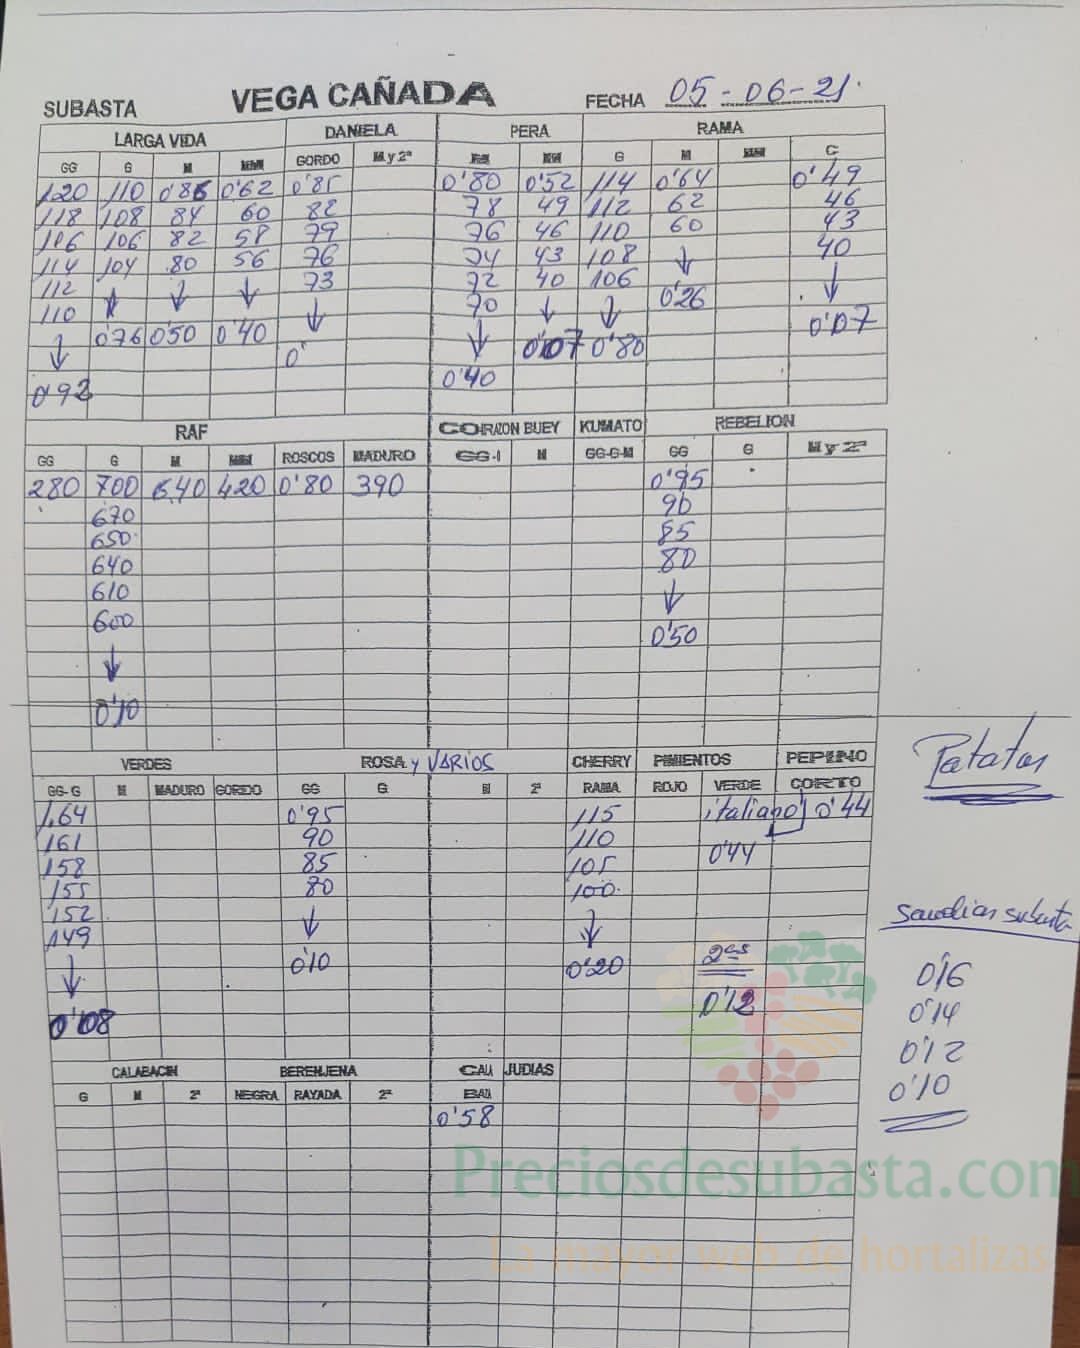 SUBASTA VEGA CAÑADA FECHA 05-06-21
LARGA VIDA DANIELA PERA RAMA
GG G M MM GORDO M y 2ª M MM G M MM C
120 110 0'86 0'62 0'85 0'80 0'52 114 0'64 0'49
118 108 84 60 82 78 49 112 62 46
106 106 82 58 79 76 46 110 60 43
114 104 80 56 76 74 43 108 ↓ 40
112 ↓ ↓ ↓ 73 72 40 106 0'26 ↓
110 0'76 0'50 0'40 ↓ 70 ↓ ↓ 0'07
↓ 0' ↓ 0'07 0'80
0'92 0'40
RAF CORAZON BUEY KUMATO REBELION
GG G M MM ROSCOS MADURO GG-1 M GG-G-M GG G M y 2ª
280 700 640 420 0'80 390 0'95
670 90
650 85
640 80
610 ↓
600 0'50
↓
0'10
Patatas
VERDES ROSA y VARIOS CHERRY PIMIENTOS PEPINO
GG-G M MADURO GORDO GG G M 2ª RAMA ROJO VERDE CORTO
1,64 0'95 115 italiano 0'44
161 90 110
158 85 105 0'44
155 80 100
152 ↓ ↓
149 0'10 0'20 2ªs
↓ 0'12
0'08
sandias subasta
0'16
0'14
0'12
0'10
CALABACIN BERENJENA CALA JUDIAS
G M 2ª NEGRA RAYADA 2ª BAZA
0'58
Preciosdesubasta.com
La mayor web de hortalizas